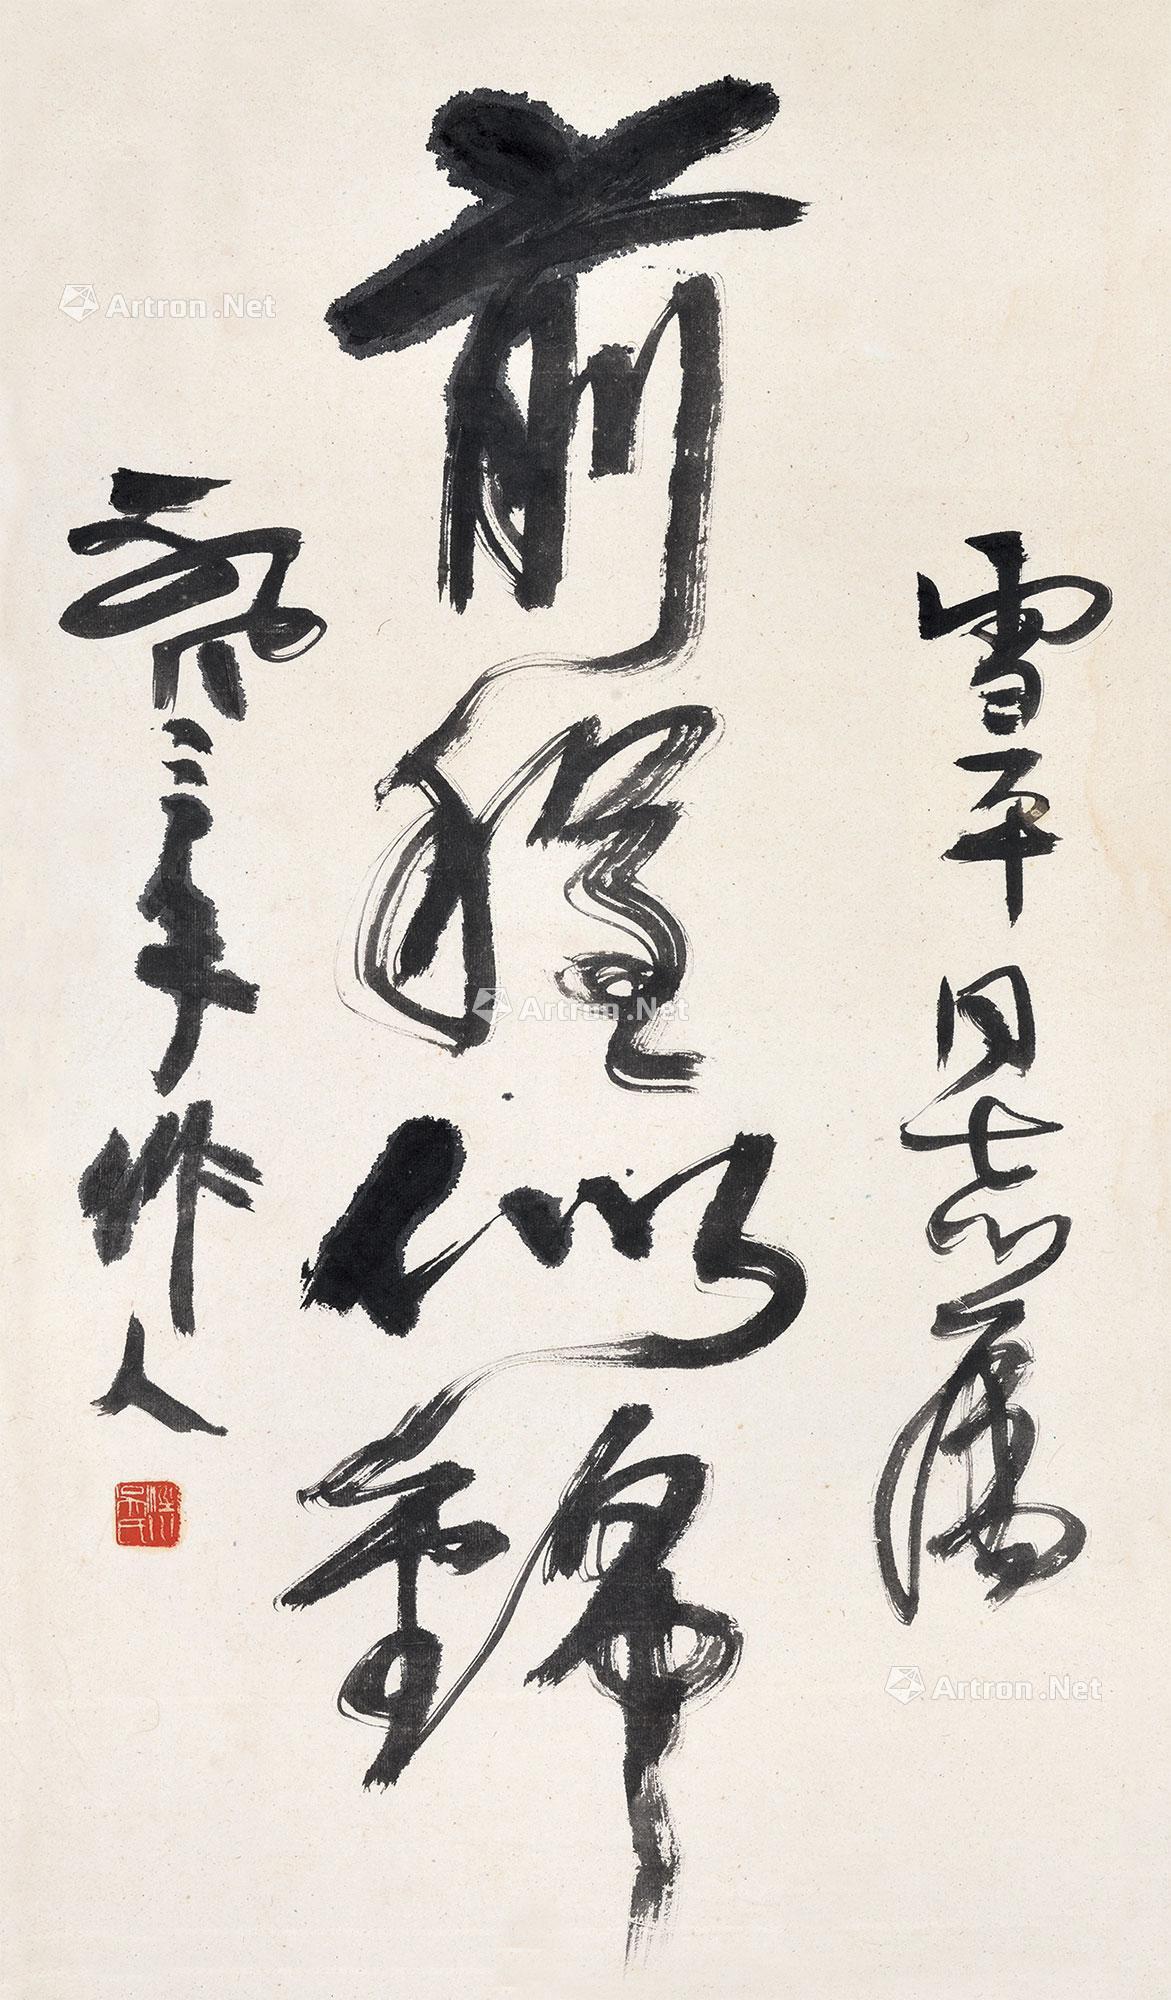 雪平同志属
前程似錦
一九八三年 作人
涇川吳氏
Artron.Net
Artron.Net
Artron.Net